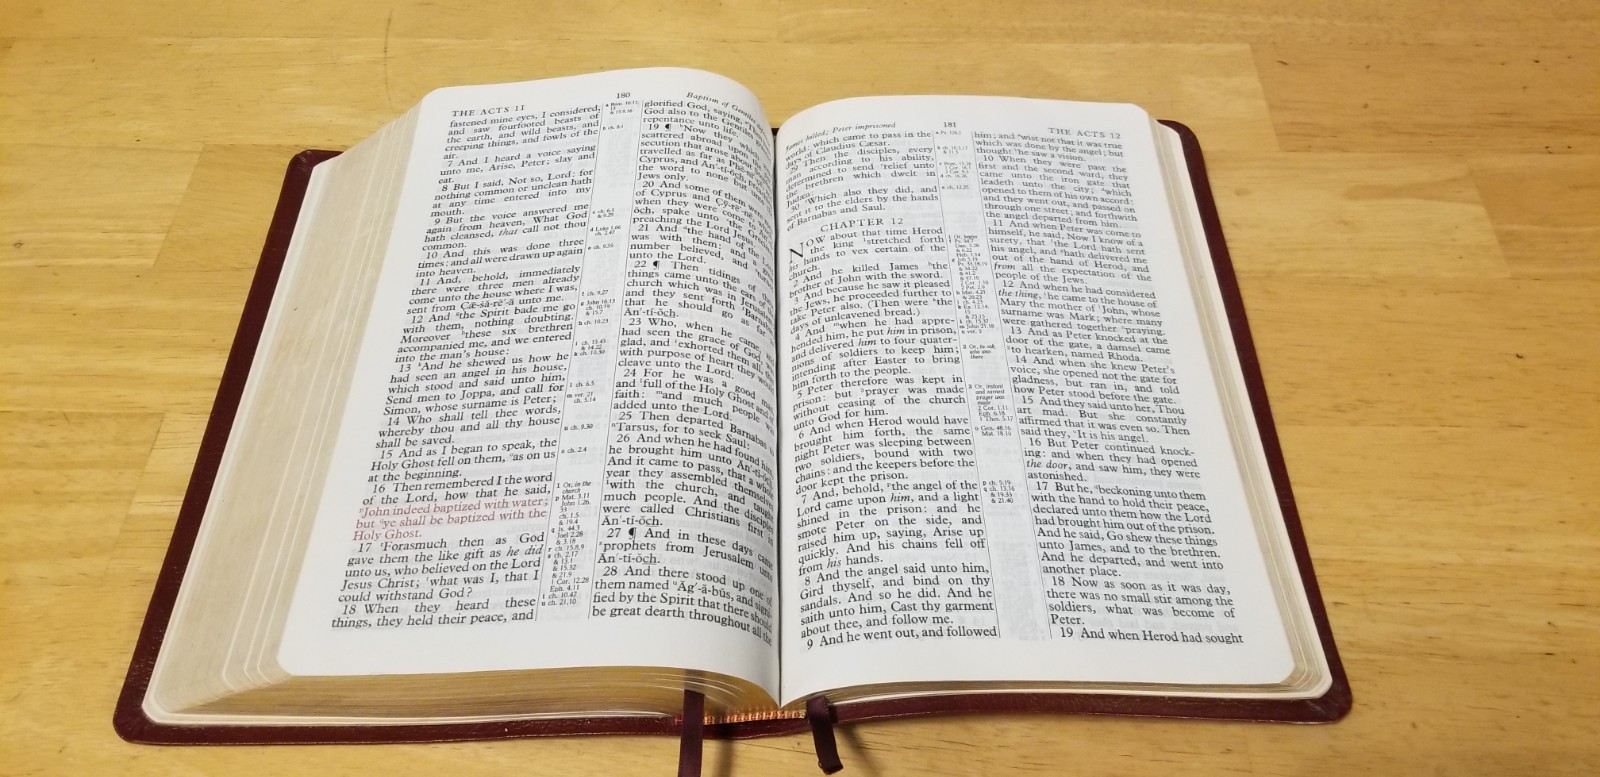 THE ACTS 11
180
Baptism of
fastened mine eyes, I considered,
and saw fourfooted beasts of
the earth, and wild beasts, and
creeping things, and fowls of the
air.
7 And I heard a voice saying
unto me, Arise, Peter; slay and
eat.
8 But I said, Not so, Lord: for
nothing common or unclean hath
at any time entered into my
mouth.
9 But the voice answered me
again from heaven, What God
hath cleansed, that call not thou
common.
10 And this was done three
times: and all were drawn up again
into heaven.
11 And, behold, immediately
there were three men already
come unto the house where I was,
sent from Cæ-să-rē'-ă unto me.
12 And the Spirit bade me go
with them, nothing doubting.
Moreover these six brethren
accompanied me, and we entered
into the man's house:
13 And he shewed us how he
had seen an angel in his house,
which stood and said unto him,
Send men to Joppa, and call for
Simon, whose surname is Peter;
14 Who shall tell thee words,
whereby thou and all thy house
shall be saved.
15 And as I began to speak, the
Holy Ghost fell on them, as on us
at the beginning.
16 Then remembered I the word
of the Lord, how that he said,
John indeed baptized with water;
but ye shall be baptized with the
Holy Ghost.
17 Forasmuch then as God
gave them the like gift as he did
unto us, who believed on the Lord
Jesus Christ; what was I, that I
could withstand God?
18 When they heard these
things, they held their peace, and
glorified God, saying,
God also to the Gentiles
repentance unto life.
19 ¶ Now they which
scattered abroad upon
secution that arose about
travelled as far as
Cyprus, and An'-tĭ-ŏch,
the word to none but
Jews only.
20 And some of them were
of Cyprus and
when they were come to
ŏch, spake unto the
preaching the Lord Jesus.
21 And the hand of the
was with them: and a
number believed, and
unto the Lord.
22 ¶ Then tidings of
things came unto the ears of
church which was in
and they sent forth
that he should go as
An'-tĭ-ŏch.
23 Who, when he came,
had seen the grace of God,
glad, and exhorted them all,
with purpose of heart they
cleave unto the Lord.
24 For he was a good
and full of the Holy Ghost and
faith: and much people was
added unto the Lord.
25 Then departed Barnabas
Tarsus, for to seek Saul:
26 And when he had found him,
he brought him unto
And it came to pass, that a whole
year they assembled themselves
with the church, and taught
much people. And the disciples
were called Christians first in
An'-tĭ-ŏch.
27 ¶ And in these days came
prophets from Jerusalem unto
An'-tĭ-ŏch.
28 And there stood up one of
them named Ăg'-ă-bŭs, and
fied by the Spirit that there should
be great dearth throughout all the
James killed; Peter imprisoned
181
THE ACTS 12
world: which came to pass in the
days of Claudius Cæsar.
29 Then the disciples, every
man according to his ability,
determined to send relief unto
the brethren which dwelt in
30 Which also they did, and
sent it to the elders by the hands
of Barnabas and Saul.
CHAPTER 12
NOW about that time Herod
the king stretched forth
his hands to vex certain of the
church.
2 And he killed James the
brother of John with the sword.
3 And because he saw it pleased
the Jews, he proceeded further to
take Peter also. (Then were the
days of unleavened bread.)
4 And when he had appre-
hended him, he put him in prison,
and delivered him to four quater-
nions of soldiers to keep him;
intending after Easter to bring
him forth to the people.
5 Peter therefore was kept in
prison: but prayer was made
without ceasing of the church
unto God for him.
6 And when Herod would have
brought him forth, the same
night Peter was sleeping between
two soldiers, bound with two
chains: and the keepers before the
door kept the prison.
7 And, behold, the angel of the
Lord came upon him, and a light
shined in the prison: and he
smote Peter on the side, and
raised him up, saying, Arise up
quickly. And his chains fell off
from his hands.
8 And the angel said unto him,
Gird thyself, and bind on thy
sandals. And so he did. And he
saith unto him, Cast thy garment
about thee, and follow me.
9 And he went out, and followed
him; and wist not that it was true
which was done by the angel; but
thought he saw a vision.
10 When they were past the
first and the second ward, they
came unto the iron gate that
leadeth unto the city; which
opened to them of his own accord:
and they went out, and passed on
through one street; and forthwith
the angel departed from him.
11 And when Peter was come to
himself, he said, Now I know of a
surety, that the Lord hath sent
his angel, and hath delivered me
out of the hand of Herod, and
from all the expectation of the
people of the Jews.
12 And when he had considered
the thing, he came to the house of
Mary the mother of John, whose
surname was Mark; where many
were gathered together praying.
13 And as Peter knocked at the
door of the gate, a damsel came
to hearken, named Rhoda.
14 And when she knew Peter's
voice, she opened not the gate for
gladness, but ran in, and told
how Peter stood before the gate.
15 And they said unto her, Thou
art mad. But she constantly
affirmed that it was even so. Then
said they, It is his angel.
16 But Peter continued knock-
ing: and when they had opened
the door, and saw him, they were
astonished.
17 But he, beckoning unto them
with the hand to hold their peace,
declared unto them how the Lord
had brought him out of the prison.
And he said, Go shew these things
unto James, and to the brethren.
And he departed, and went into
another place.
18 Now as soon as it was day,
there was no small stir among the
soldiers, what was become of
Peter.
19 And when Herod had sought